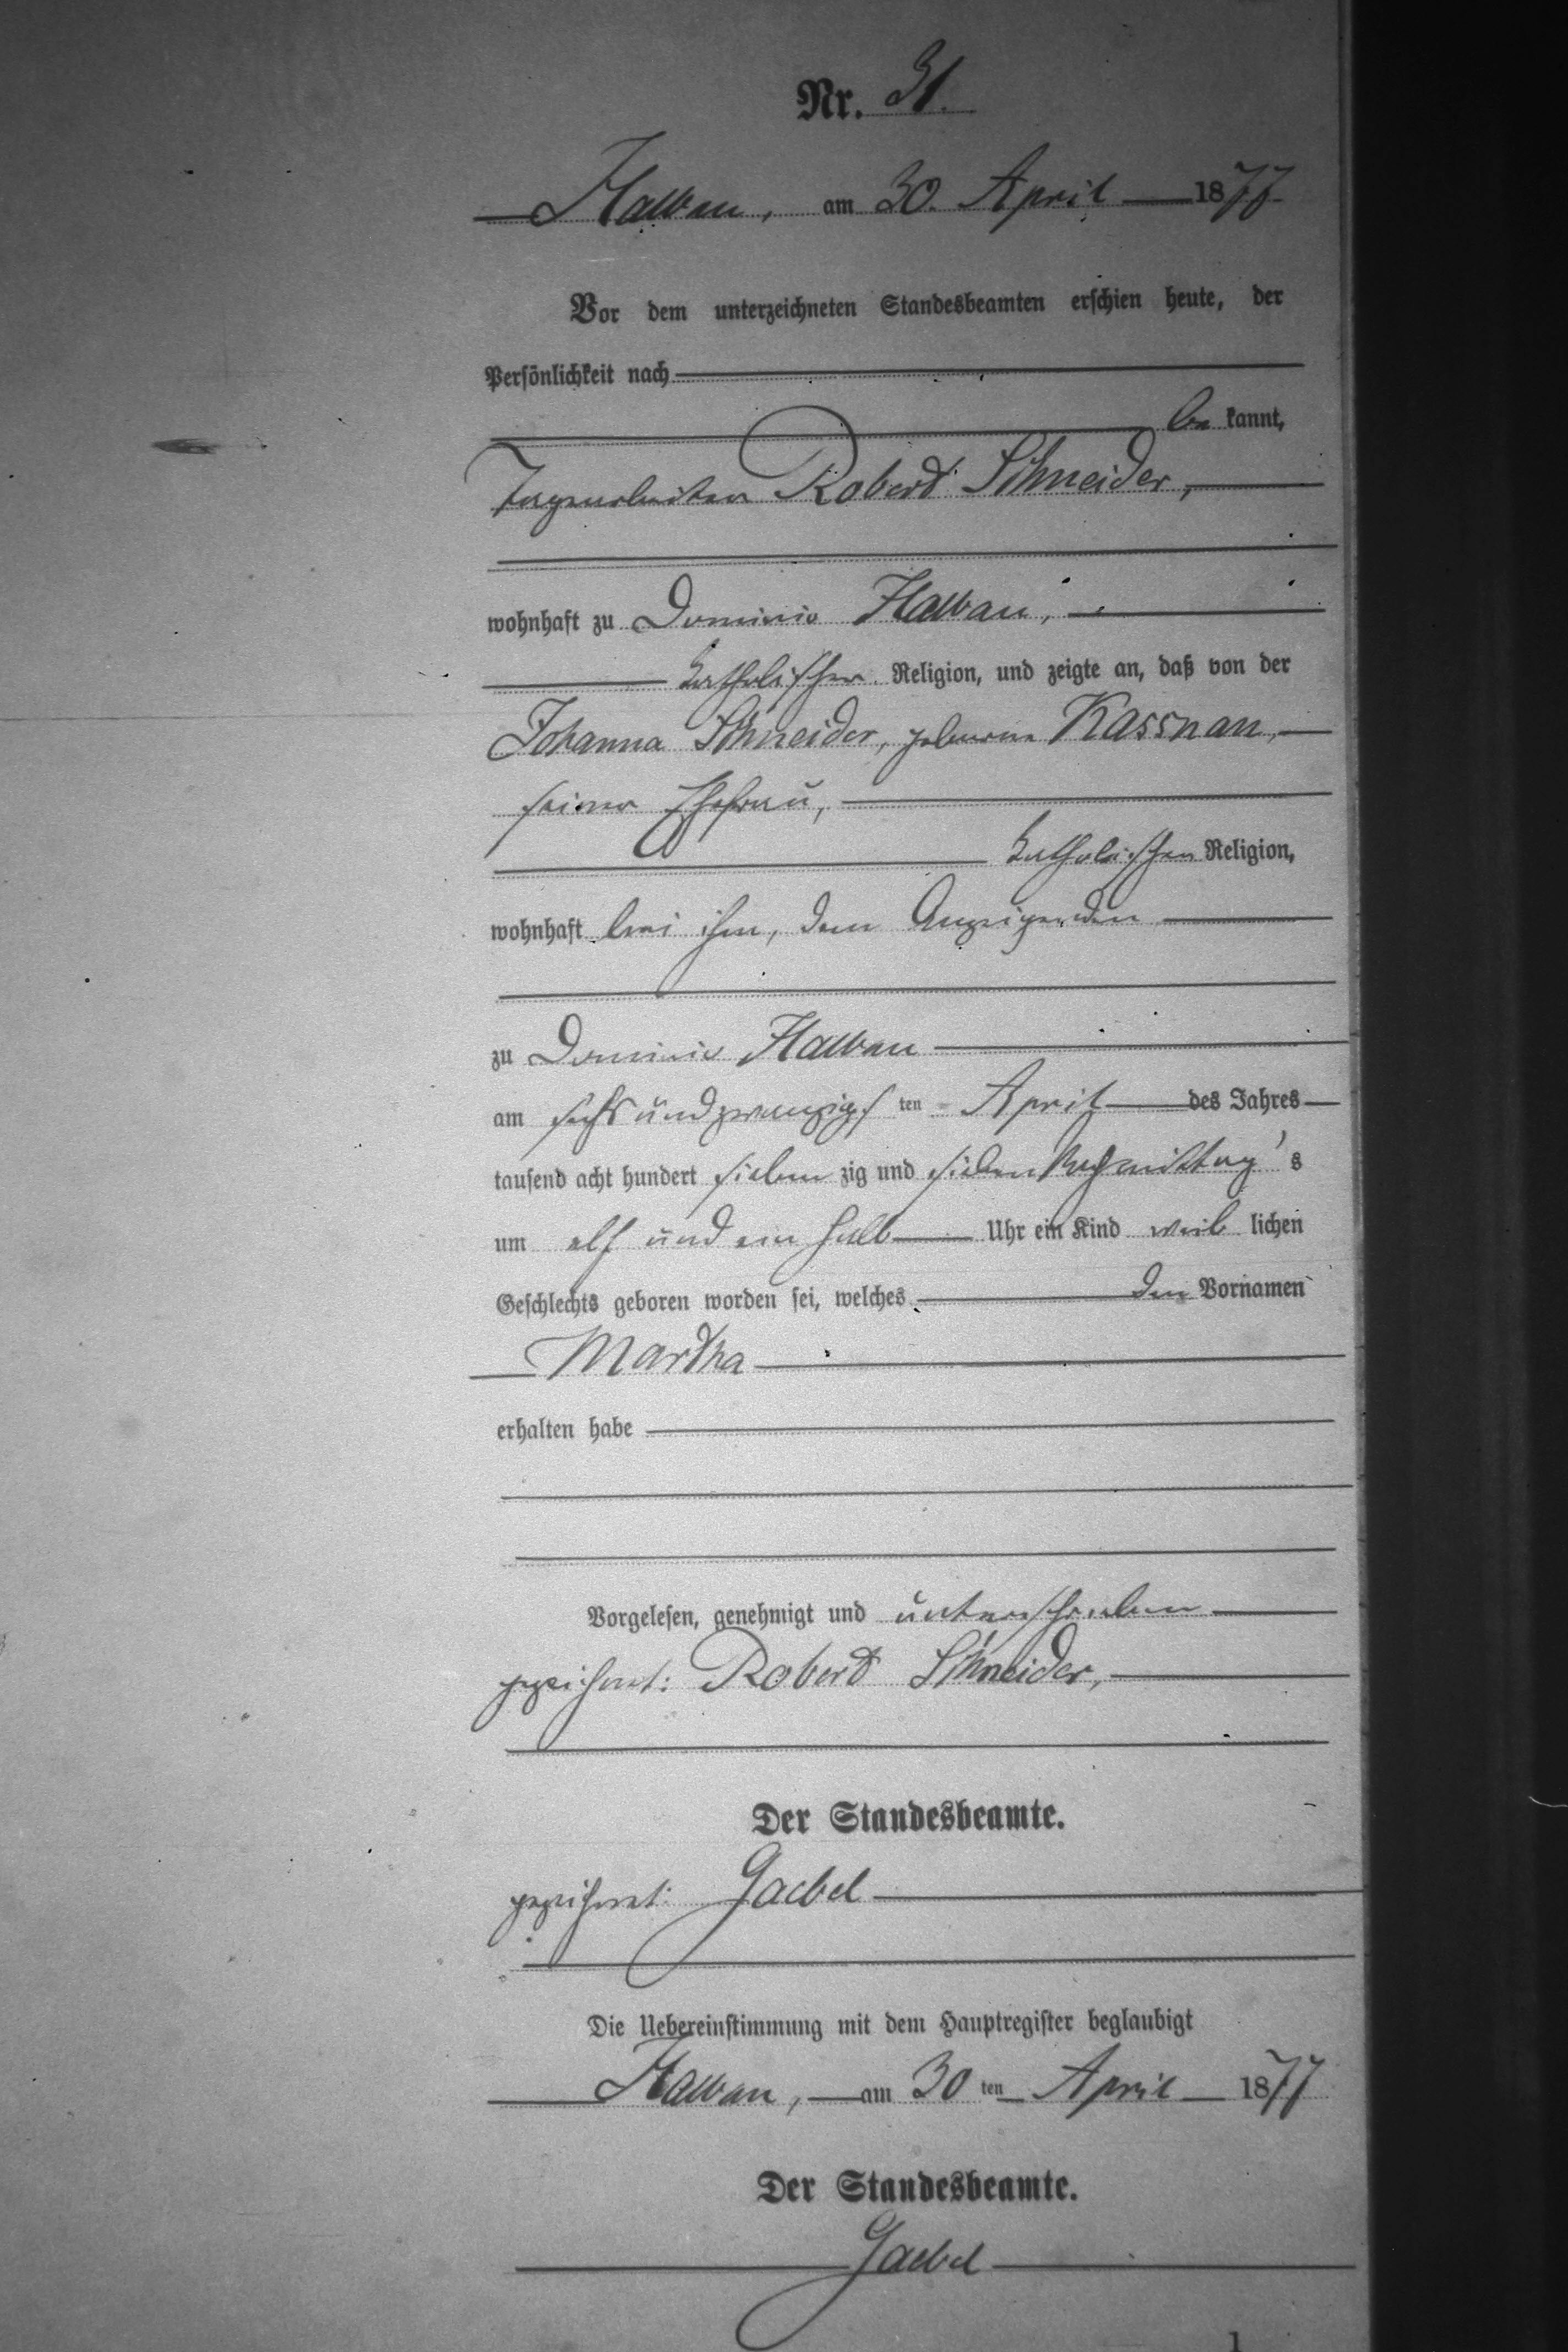 Nr. 31.
Halbau, am 30. April 1877
Vor dem unterzeichneten Standesbeamten erschien heute, der
Persönlichkeit nach
be kannt,
Tagearbeiter Robert Schneider,
wohnhaft zu Dominio Halbau,
katholischer Religion, und zeigte an, daß von der
Johanna Schneider, geborene Kassnau,
seiner Ehefrau,
katholischer Religion,
wohnhaft bei ihm, dem Anzeigenden
zu Dominio Halbau
am sechsundzwanzigs ten April des Jahres
tausend acht hundert sieben zig und sieben Nachmittag's
um elf und ein halb Uhr ein Kind weib lichen
Geschlechts geboren worden sei, welches den Vornamen
Martha
erhalten habe
Vorgelesen, genehmigt und unterschrieben
gezeichnet: Robert Schneider,
Der Standesbeamte.
gezeichnet: Gaebel
Die Uebereinstimmung mit dem Hauptregister beglaubigt
Halbau, am 30 ten April 1877
Der Standesbeamte.
Gaebel
1